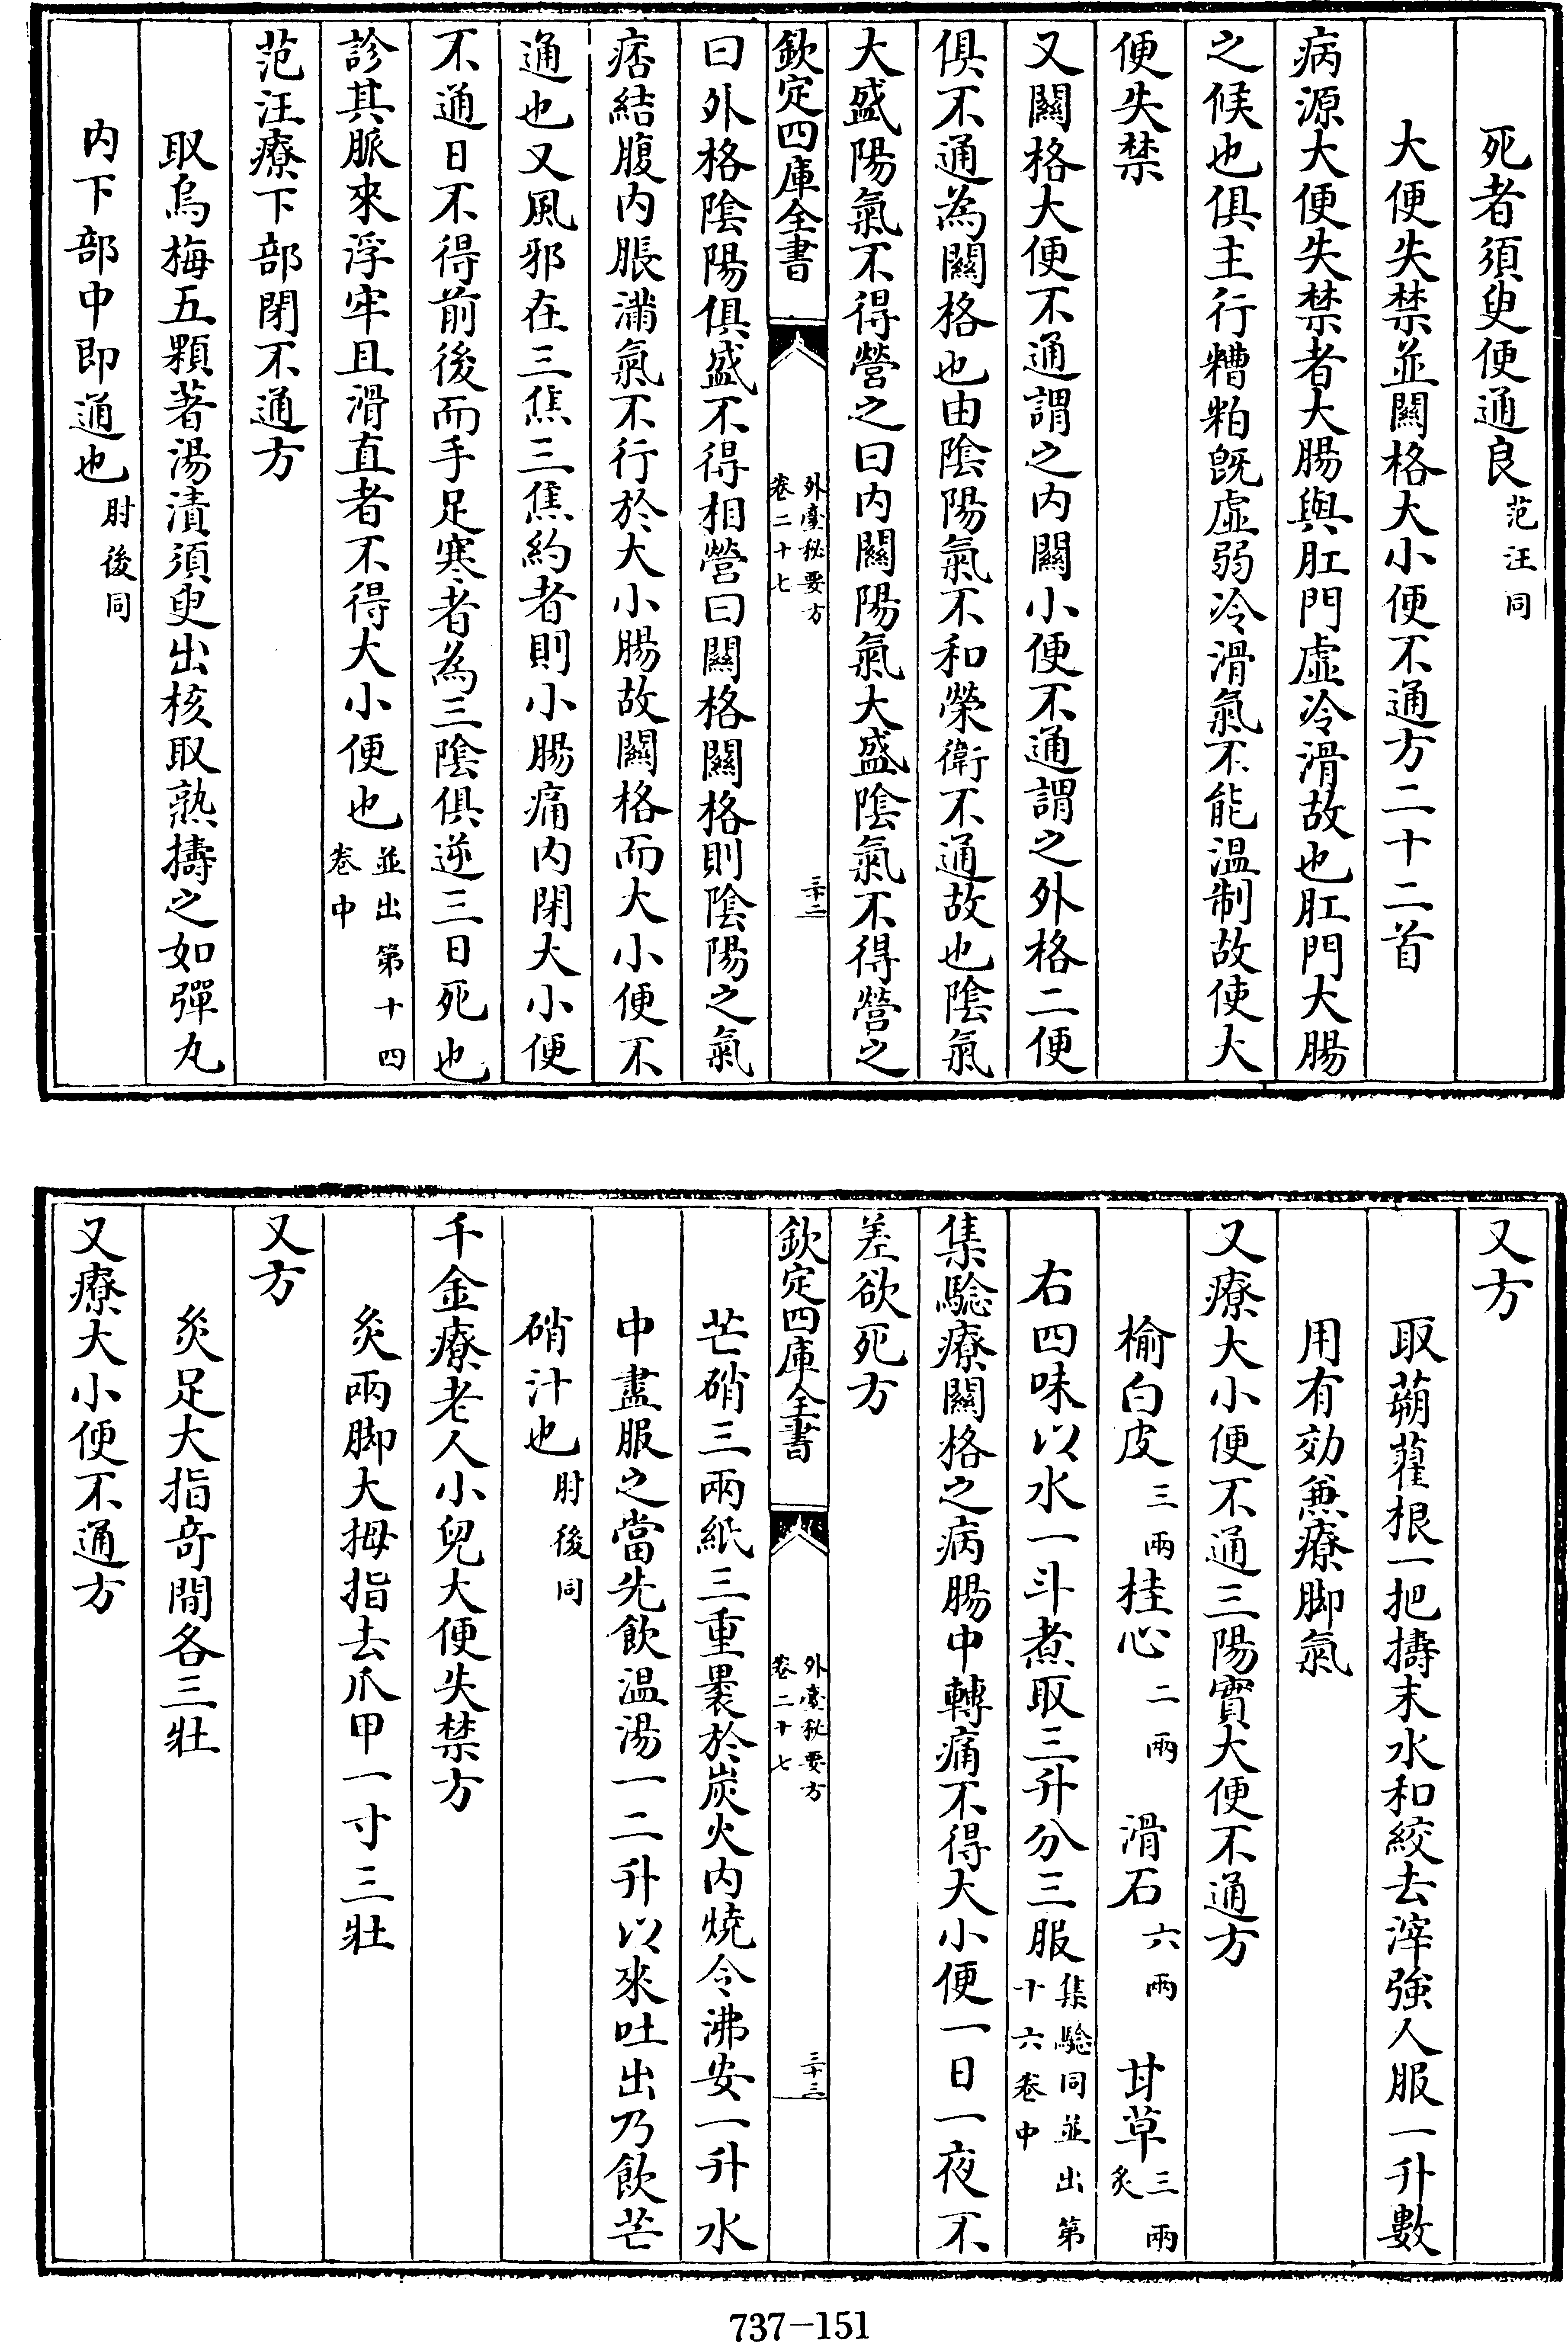 死者須臾便通良范汪同
大便失禁並關格大小便不通方二十二首
病源大便失禁者大腸與肛門虛冷滑故也肛門大腸
之候也俱主行糟粕既虛弱冷滑氣不能温制故使大
便失禁
又關格大便不通謂之内關小便不通謂之外格二便
俱不通為關格也由隂陽氣不和榮衛不通故也隂氣
大盛陽氣不得營之曰内關陽氣大盛隂氣不得營之
欽定四庫全書
外臺秘要方
卷二十七
三十二
曰外格隂陽俱盛不得相營曰關格關格則隂陽之氣
痞結腹内脹滿氣不行於大小腸故關格而大小便不
通也又風邪在三焦三焦約者則小腸痛内閉大小便
不通日不得前後而手足寒者為三隂俱逆三日死也
診其脈來浮牢且滑直者不得大小便也並出第十四
卷中
范汪療下部閉不通方
取烏梅五顆著湯漬須臾出核取熟擣之如彈丸
内下部中即通也肘後同
又方
取蒴藋根一把擣末水和絞去滓強人服一升數
用有効兼療脚氣
又療大小便不通三陽實大便不通方
榆白皮三兩 桂心二兩 滑石六兩 甘草三兩
炙
右四味以水一斗煮取三升分三服集驗同並出第
十六卷中
集驗療關格之病腸中轉痛不得大小便一日一夜不
差欲死方
欽定四庫全書
外臺秘要方
卷二十七
三十三
芒硝三兩紙三重裹於炭火内燒令沸安一升水
中盡服之當先飲温湯一二升以來吐出乃飲芒
硝汁也肘後同
千金療老人小兒大便失禁方
炙兩脚大拇指去爪甲一寸三壯
又方
炙足大指奇間各三壯
又療大小便不通方
737-151